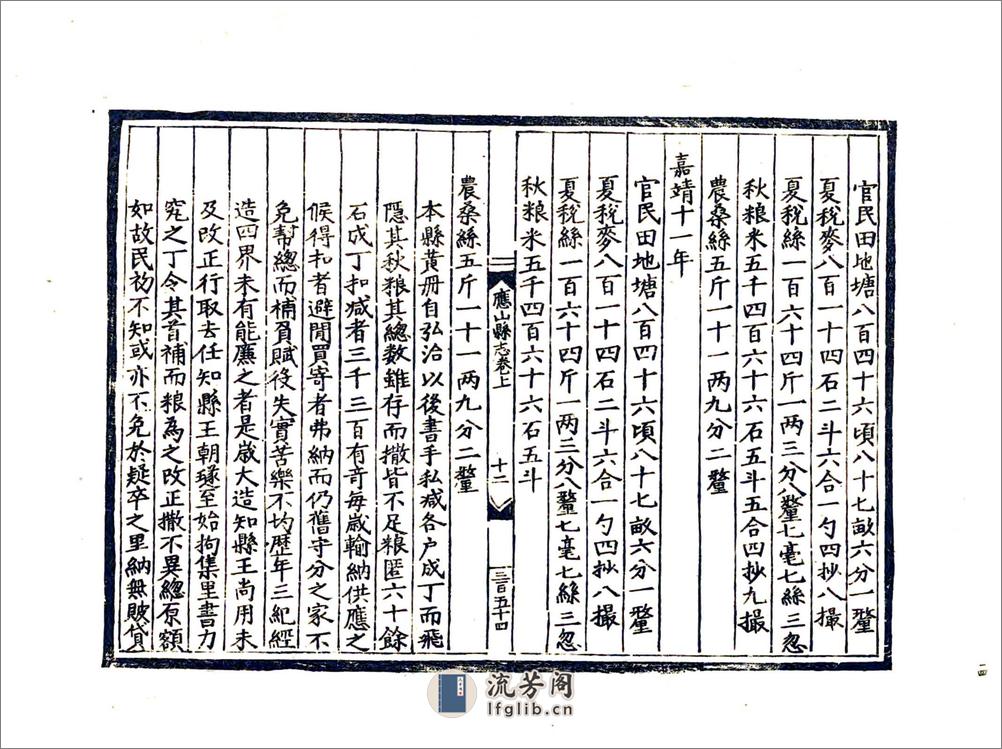 官民田地塘八百四十六頃八十七畝六分一釐
夏稅麥八百一十四石二斗六合一勺四抄八撮
夏稅絲一百六十四斤一两三分八釐七毫七絲三忽
秋粮米五千四百六十六石五斗五合四抄九撮
農桑絲五斤一十一两九分二釐
嘉靖十一年
官民田地塘八百四十六頃八十七畝六分一釐
夏稅麥八百一十四石二斗六合一勺四抄八撮
夏稅絲一百六十四斤一两三分八釐七毫七絲三忽
秋粮米五千四百六十六石五斗
應山縣志卷上
十二
三百五十四
農桑絲五斤一十一两九分二釐
本縣黄册自弘治以後書手私减各户成丁而飛
隱其秋粮其總数雖存而撒皆不足粮匿六十餘
石成丁扣减者三千三百有竒每歲輸納供應之
候得扣者避閒買寄者弗納而仍舊守分之家不
免幫總而補貟賦役失實苦樂不均歷年三紀經
造四界未有能廉之者是歲大造知縣王尚用未
及改正行取去任知縣王朝璲至始拘集里書力
究之丁令其首補而粮為之改正撒不異總原額
如故民初不知或亦不免於疑卒之里納無賍貸
二四
流芳阁
lfglib.cn